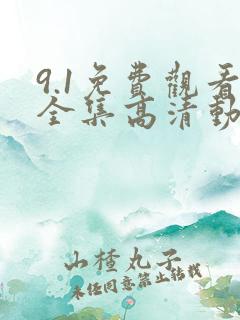 9.1免費觀看
全集高清動
山楂丸子
未经同意禁止转载